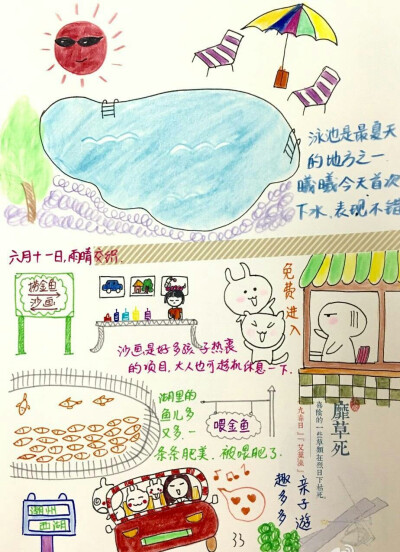 泳池是最夏天
的地方之一
曦曦今天首次
下水，表现不错
六月十一日，雨晴交织。
捞金鱼
沙画
免费进入
沙画是好多孩子热衷
的项目，大人也可趁机休息一下．
湖里的
鱼儿多
又多…
条条肥美．被喂肥了．
喂金鱼
靡草死
葶苈的一些草类在烈日下枯死。
潮州
西湖
亲子游
趣多多
33